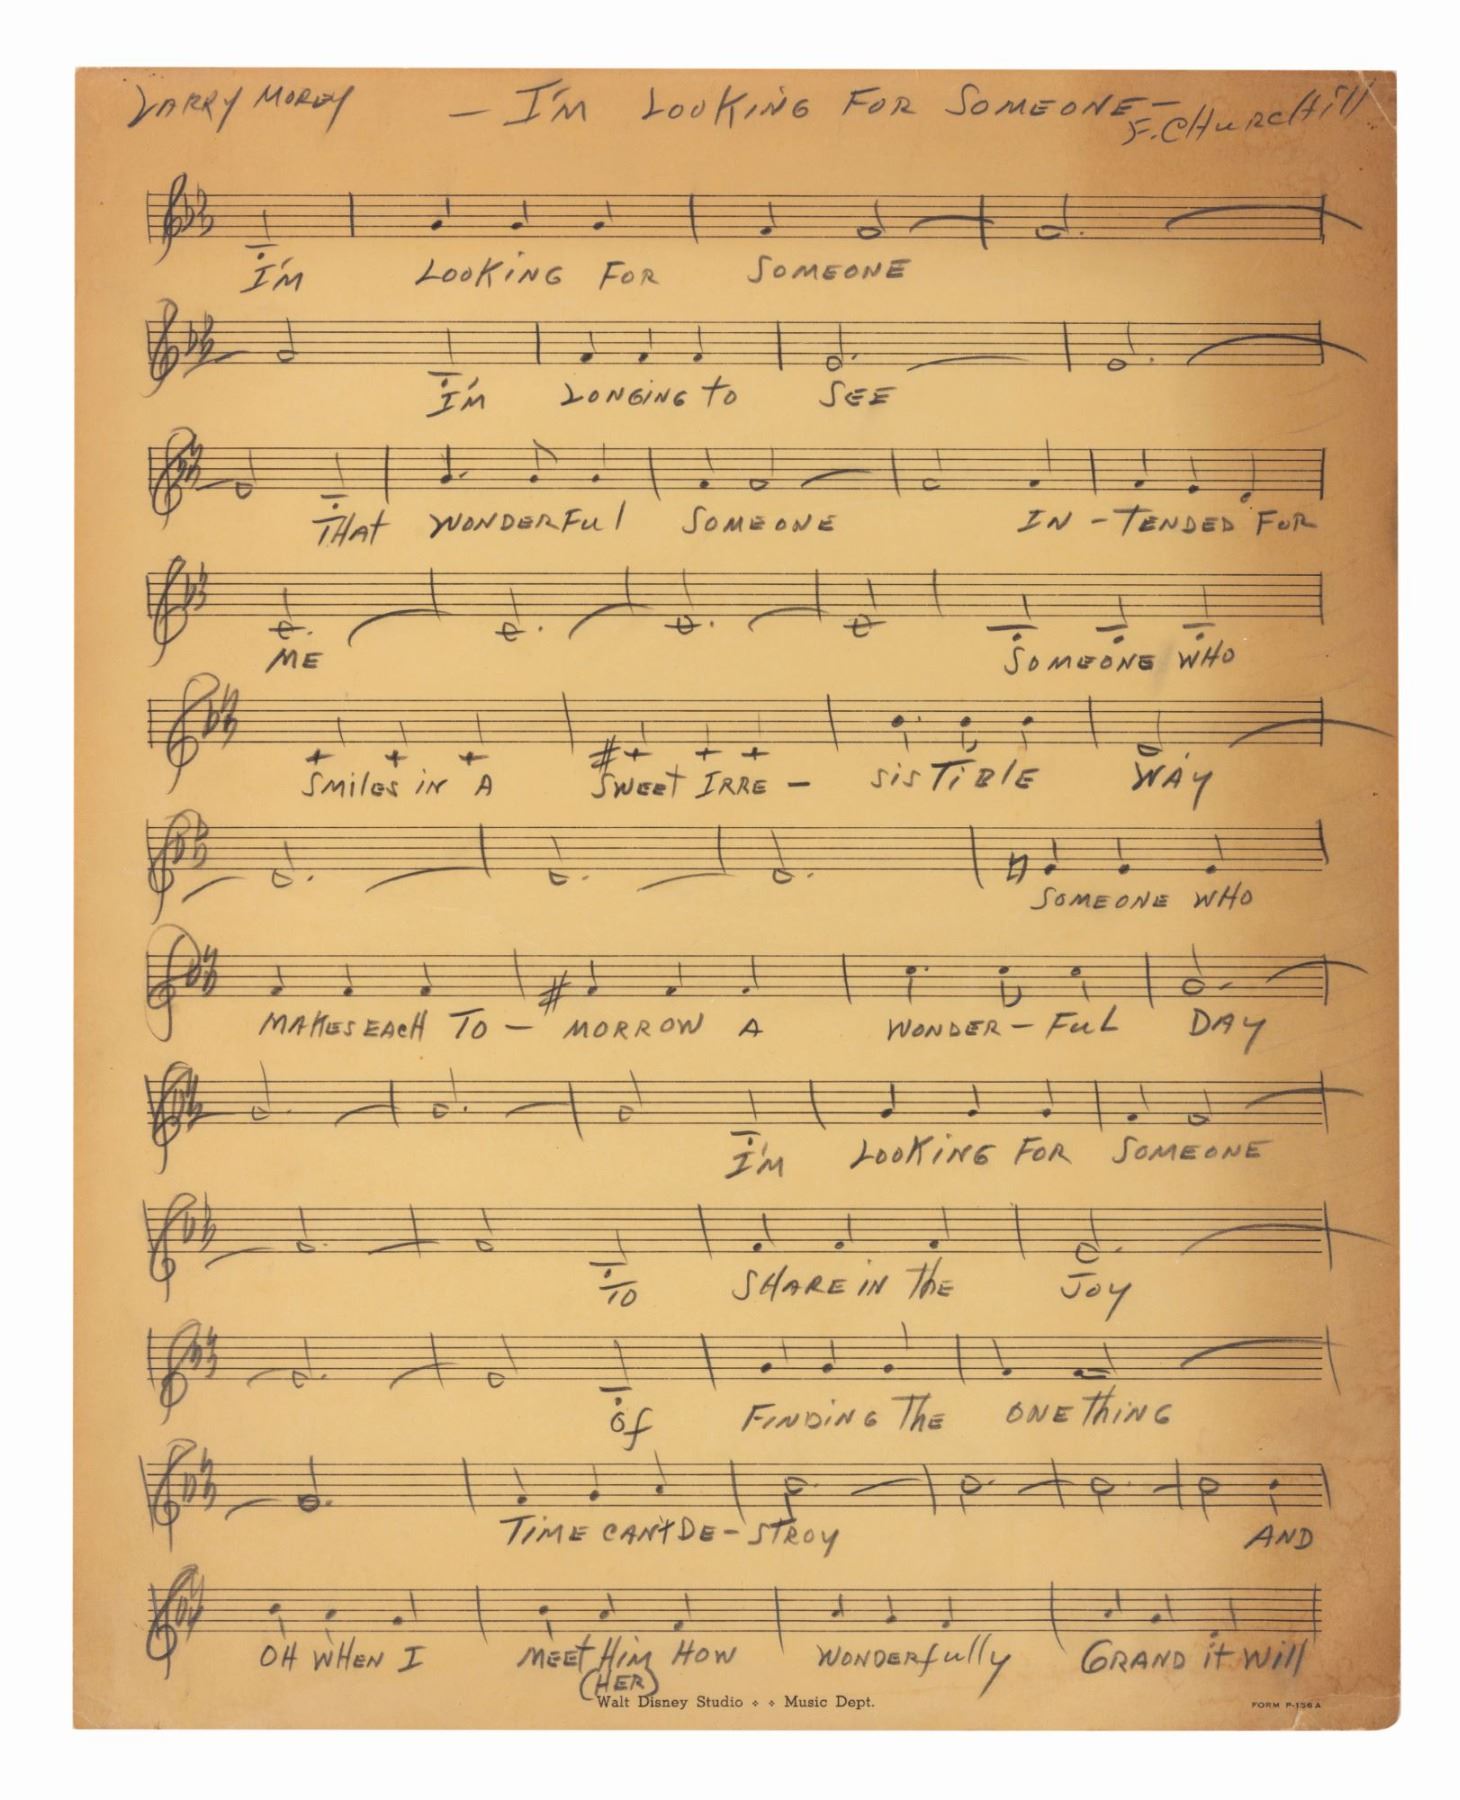 LARRY MOREY — I'M LOOKING FOR SOMEONE —
F. CHURCHILL
I'M LOOKING FOR SOMEONE
I'M LONGING TO SEE
THAT WONDERFUL SOMEONE IN - TENDED FOR
ME SOMEONE WHO
SMILES IN A SWEET IRRE - SISTIBLE WAY
SOMEONE WHO
MAKES EACH TO - MORROW A WONDER - FUL DAY
I'M LOOKING FOR SOMEONE
TO SHARE IN THE JOY
OF FINDING THE ONE THING
TIME CAN'T DE - STROY AND
OH WHEN I MEET HIM HOW WONDERFULLY GRAND IT WILL
(HER)
Walt Disney Studio ⋄ ⋄ Music Dept.
FORM P-136A